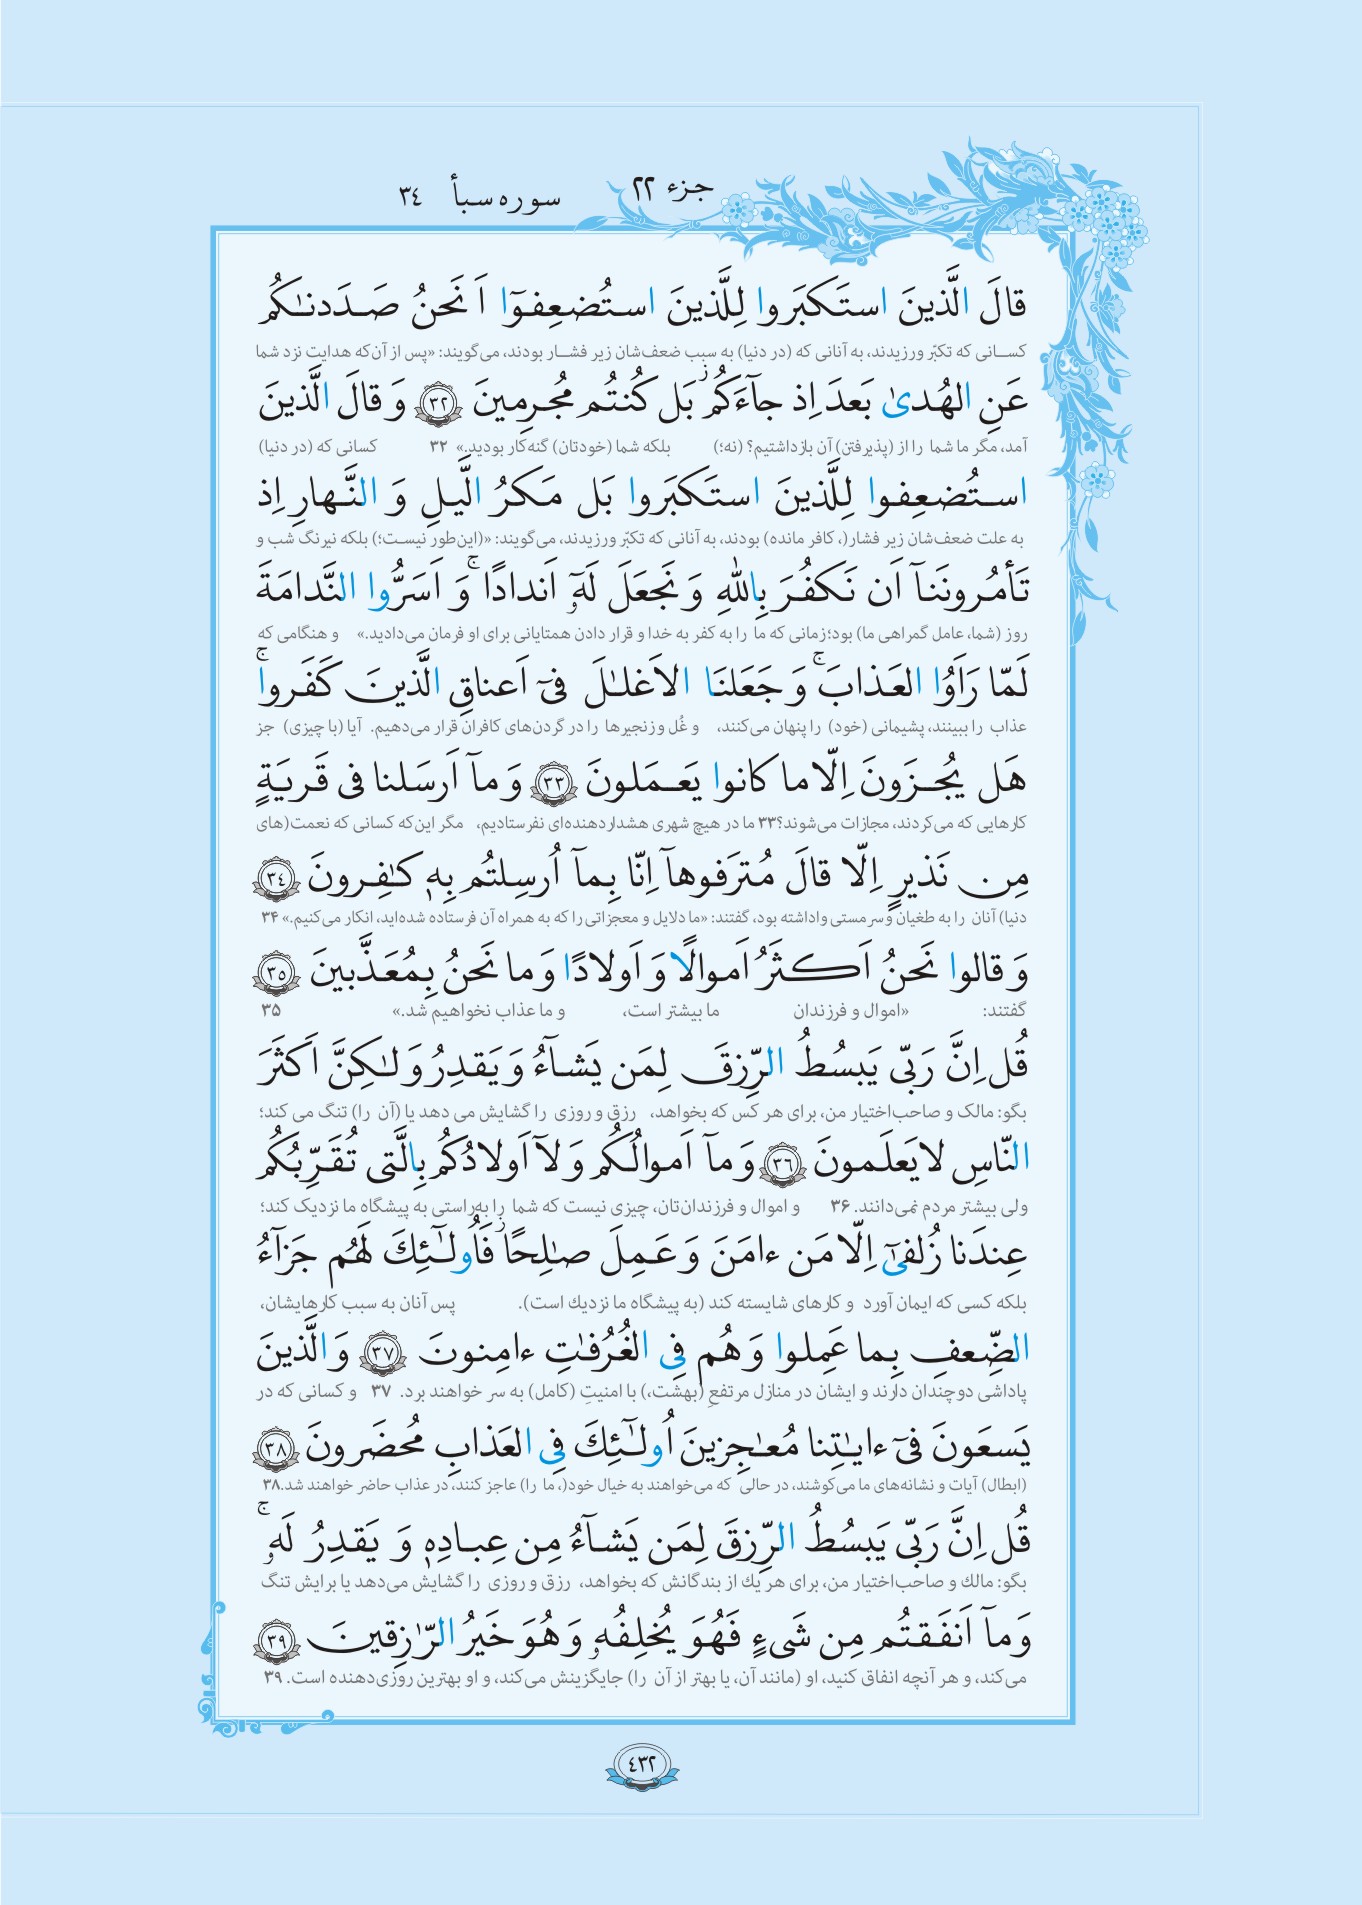 جزء ٢٢
سوره سبأ ٣٤
قالَ الَّذينَ استَكبَروا لِلَّذينَ استُضعِفوٓا اَنَحنُ صَدَدنـٰكُم
کسـانی که تکبّر ورزیدند، به آنانی که (در دنیا) به سبب ضعف‌شان زیر فشـار بودند، می‌گویند: «پس از آن‌که هدایت نزد شما
عَنِ الهُدىٰ بَعدَ اِذ جآءَكُمۖ بَل كُنتُم مُجرِمينَ ٣٢ وَ قالَ الَّذينَ
آمد، مگر ما شما را از (پذیرفتن) آن بازداشتیم؟ (نه؛) بلکه شما (خودتان) گنه‌کار بودید.» ۳۲ کسانی که (در دنیا)
استُضعِفوا لِلَّذينَ استَكبَروا بَل مَكرُ الَّيلِ وَ النَّهارِ اِذ
به علت ضعف‌شان زیر فشار(، کافر مانده) بودند، به آنانی که تکبّر ورزیدند، می‌گویند: «(این‌طور نیست؛) بلکه نیرنگ شب و
تَأمُرونَنآ اَن نَكفُرَ بِاللهِ وَ نَجعَلَ لَهٓۥ اَندادًاۚ وَ اَسَرُّوا النَّدامَةَ
روز (شما، عامل گمراهی ما) بود؛زمانی که ما را به کفر به خدا و قرار دادن همتایانی برای او فرمان می‌دادید.» و هنگامی که
لَمّا رَاَوُا العَذابَۚ وَ جَعَلنَا الاَغلـٰلَ فىٓ اَعناقِ الَّذينَ كَفَرواۚ
عذاب را ببینند، پشیمانی (خود) را پنهان می‌کنند، و غُل و زنجیرها را در گردن‌های کافران قرار می‌دهیم. آیا (با چیزی) جز
هَل يُجزَونَ اِلّا ما كانوا يَعمَلونَ ٣٣ وَ مآ اَرسَلنا فى قَريَةٍ
کارهایی که می‌کردند، مجازات می‌شوند؟۳۳ ما در هیچ شهری هشداردهنده‌ای نفرستادیم، مگر این‌که کسانی که نعمت(های
مِن نَذيرٍ اِلّا قالَ مُترَفوهآ اِنّا بِمآ اُرسِلتُم بِهٖ كـٰفِرونَ ٣٤
دنیا) آنان را به طغیان و سرمستی واداشته بود، گفتند: «ما دلایل و معجزاتی را که به همراه آن فرستاده شده‌اید، انکار می‌کنیم.» ۳۴
وَ قالوا نَحنُ اَكثَرُ اَموالًا وَ اَولادًا وَ ما نَحنُ بِمُعَذَّبينَ ٣٥
گفتند: «اموال و فرزندان ما بیشتر است، و ما عذاب نخواهیم شد.» ۳۵
قُل اِنَّ رَبّى يَبسُطُ الرِّزقَ لِمَن يَشآءُ وَ يَقدِرُ وَ لـٰكِنَّ اَكثَرَ
بگو: مالک و صاحب‌اختیار من، برای هر کس که بخواهد، رزق و روزی را گشایش می دهد یا (آن را) تنگ می کند؛
النّاسِ لا يَعلَمونَ ٣٦ وَ مآ اَموالُكُم وَ لآ اَولادُكُم بِالَّتى تُقَرِّبُكُم
ولی بیشتر مردم نمی‌دانند. ۳۶ و اموال و فرزندان‌تان، چیزی نیست که شما را به‌راستی به پیشگاه ما نزدیک کند؛
عِندَنا زُلفىٰٓ اِلّا مَن ءامَنَ وَ عَمِلَ صـٰلِحًاۖ فَاُولـٰٓئِكَ لَهُم جَزآءُ
بلکه کسی که ایمان آورد و کارهای شایسته کند (به پیشگاه ما نزدیك است). پس آنان به سبب کارهایشان،
الضِّعفِ بِما عَمِلوا وَ هُم فِى الغُرُفـٰتِ ءامِنونَ ٣٧ وَ الَّذينَ
پاداشی دوچندان دارند و ایشان در منازل مرتفعِ (بهشت،) با امنیتِ (کامل) به سر خواهند برد. ۳۷ و کسانی که در
يَسعَونَ فىٓ ءايـٰتِنا مُعـٰجِزينَ اُولـٰٓئِكَ فِى العَذابِ مُحضَرونَ ٣٨
(ابطال) آیات و نشانه‌های ما می‌کوشند، در حالی که می‌خواهند به خیال خود(، ما را) عاجز کنند، در عذاب حاضر خواهند شد.۳۸
قُل اِنَّ رَبّى يَبسُطُ الرِّزقَ لِمَن يَشآءُ مِن عِبادِهٖ وَ يَقدِرُ لَهۥۚ
بگو: مالك و صاحب‌اختیار من، برای هر یك از بندگانش که بخواهد، رزق و روزی را گشایش می‌دهد یا برایش تنگ
وَ مآ اَنفَقتُم مِن شَىءٍ فَهُوَ يُخلِفُهۥ وَ هُوَ خَيرُ الرّٰزِقينَ ٣٩
می‌کند، و هر آنچه انفاق کنید، او (مانند آن، یا بهتر از آن را) جایگزینش می‌کند، و او بهترین روزی‌دهنده است. ۳۹
٤٣٢